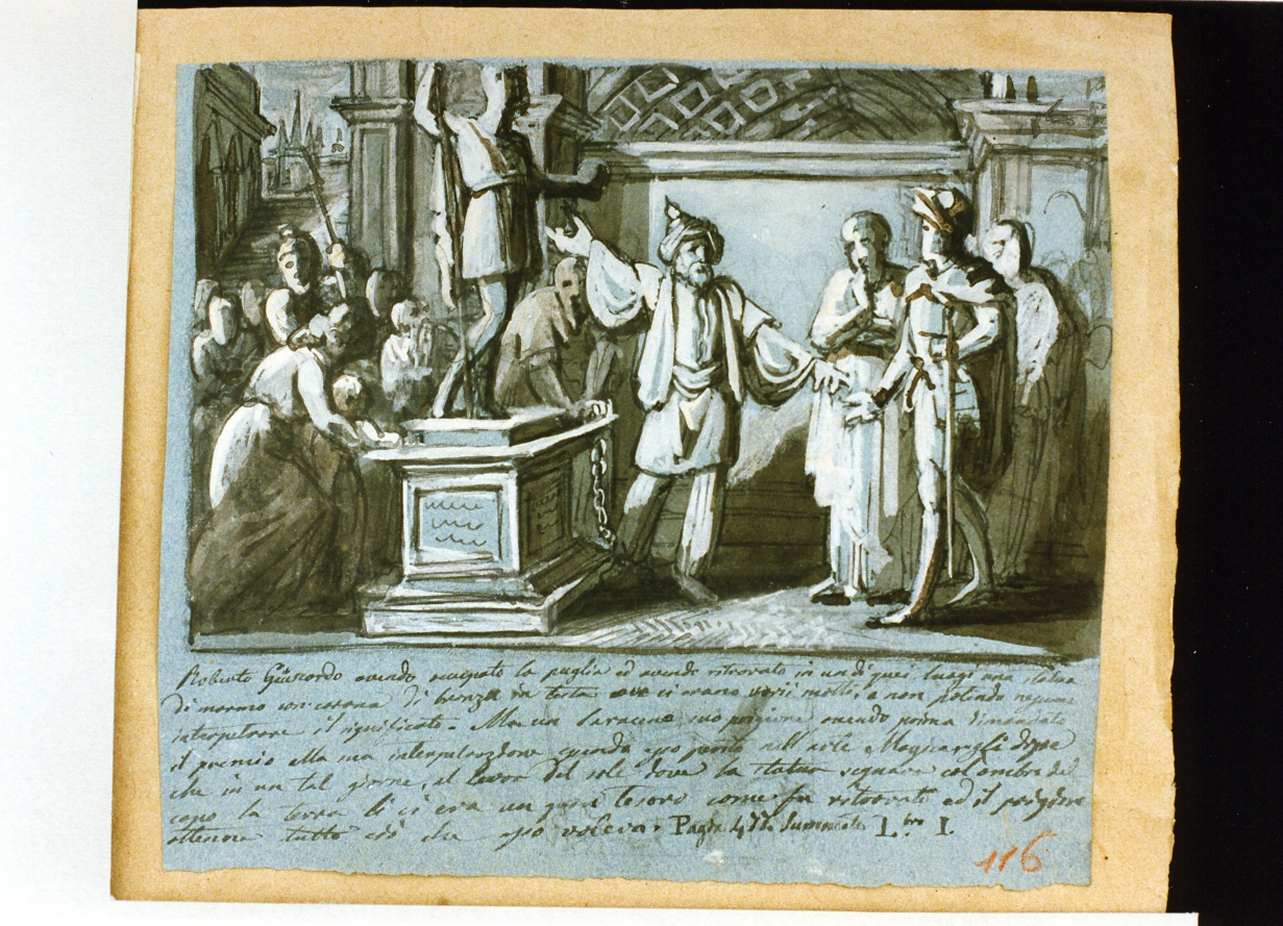 Roberto Guiscardo avendo occupato la puglia ed avendo ritrovato in un di quei luogi una statua
di marmo con corona di bronzo in testa ove ci erano varii motti, e non potendo nessuno
interpetrare il significato. Ma un Saraceno suo prigione avendo prima dimandato
il premio alla sua interpetrazione essendo esso perito nell'arte Magica gli disse
che in un tal giorno, al levar del sole dove la statua segnava col ombra del
capo la terra lì ci era un gran tesoro come fu ritrovato ed il prigione
ottenne tutto ciò che esso voleva. Pag. Summonte L.bro I.
116